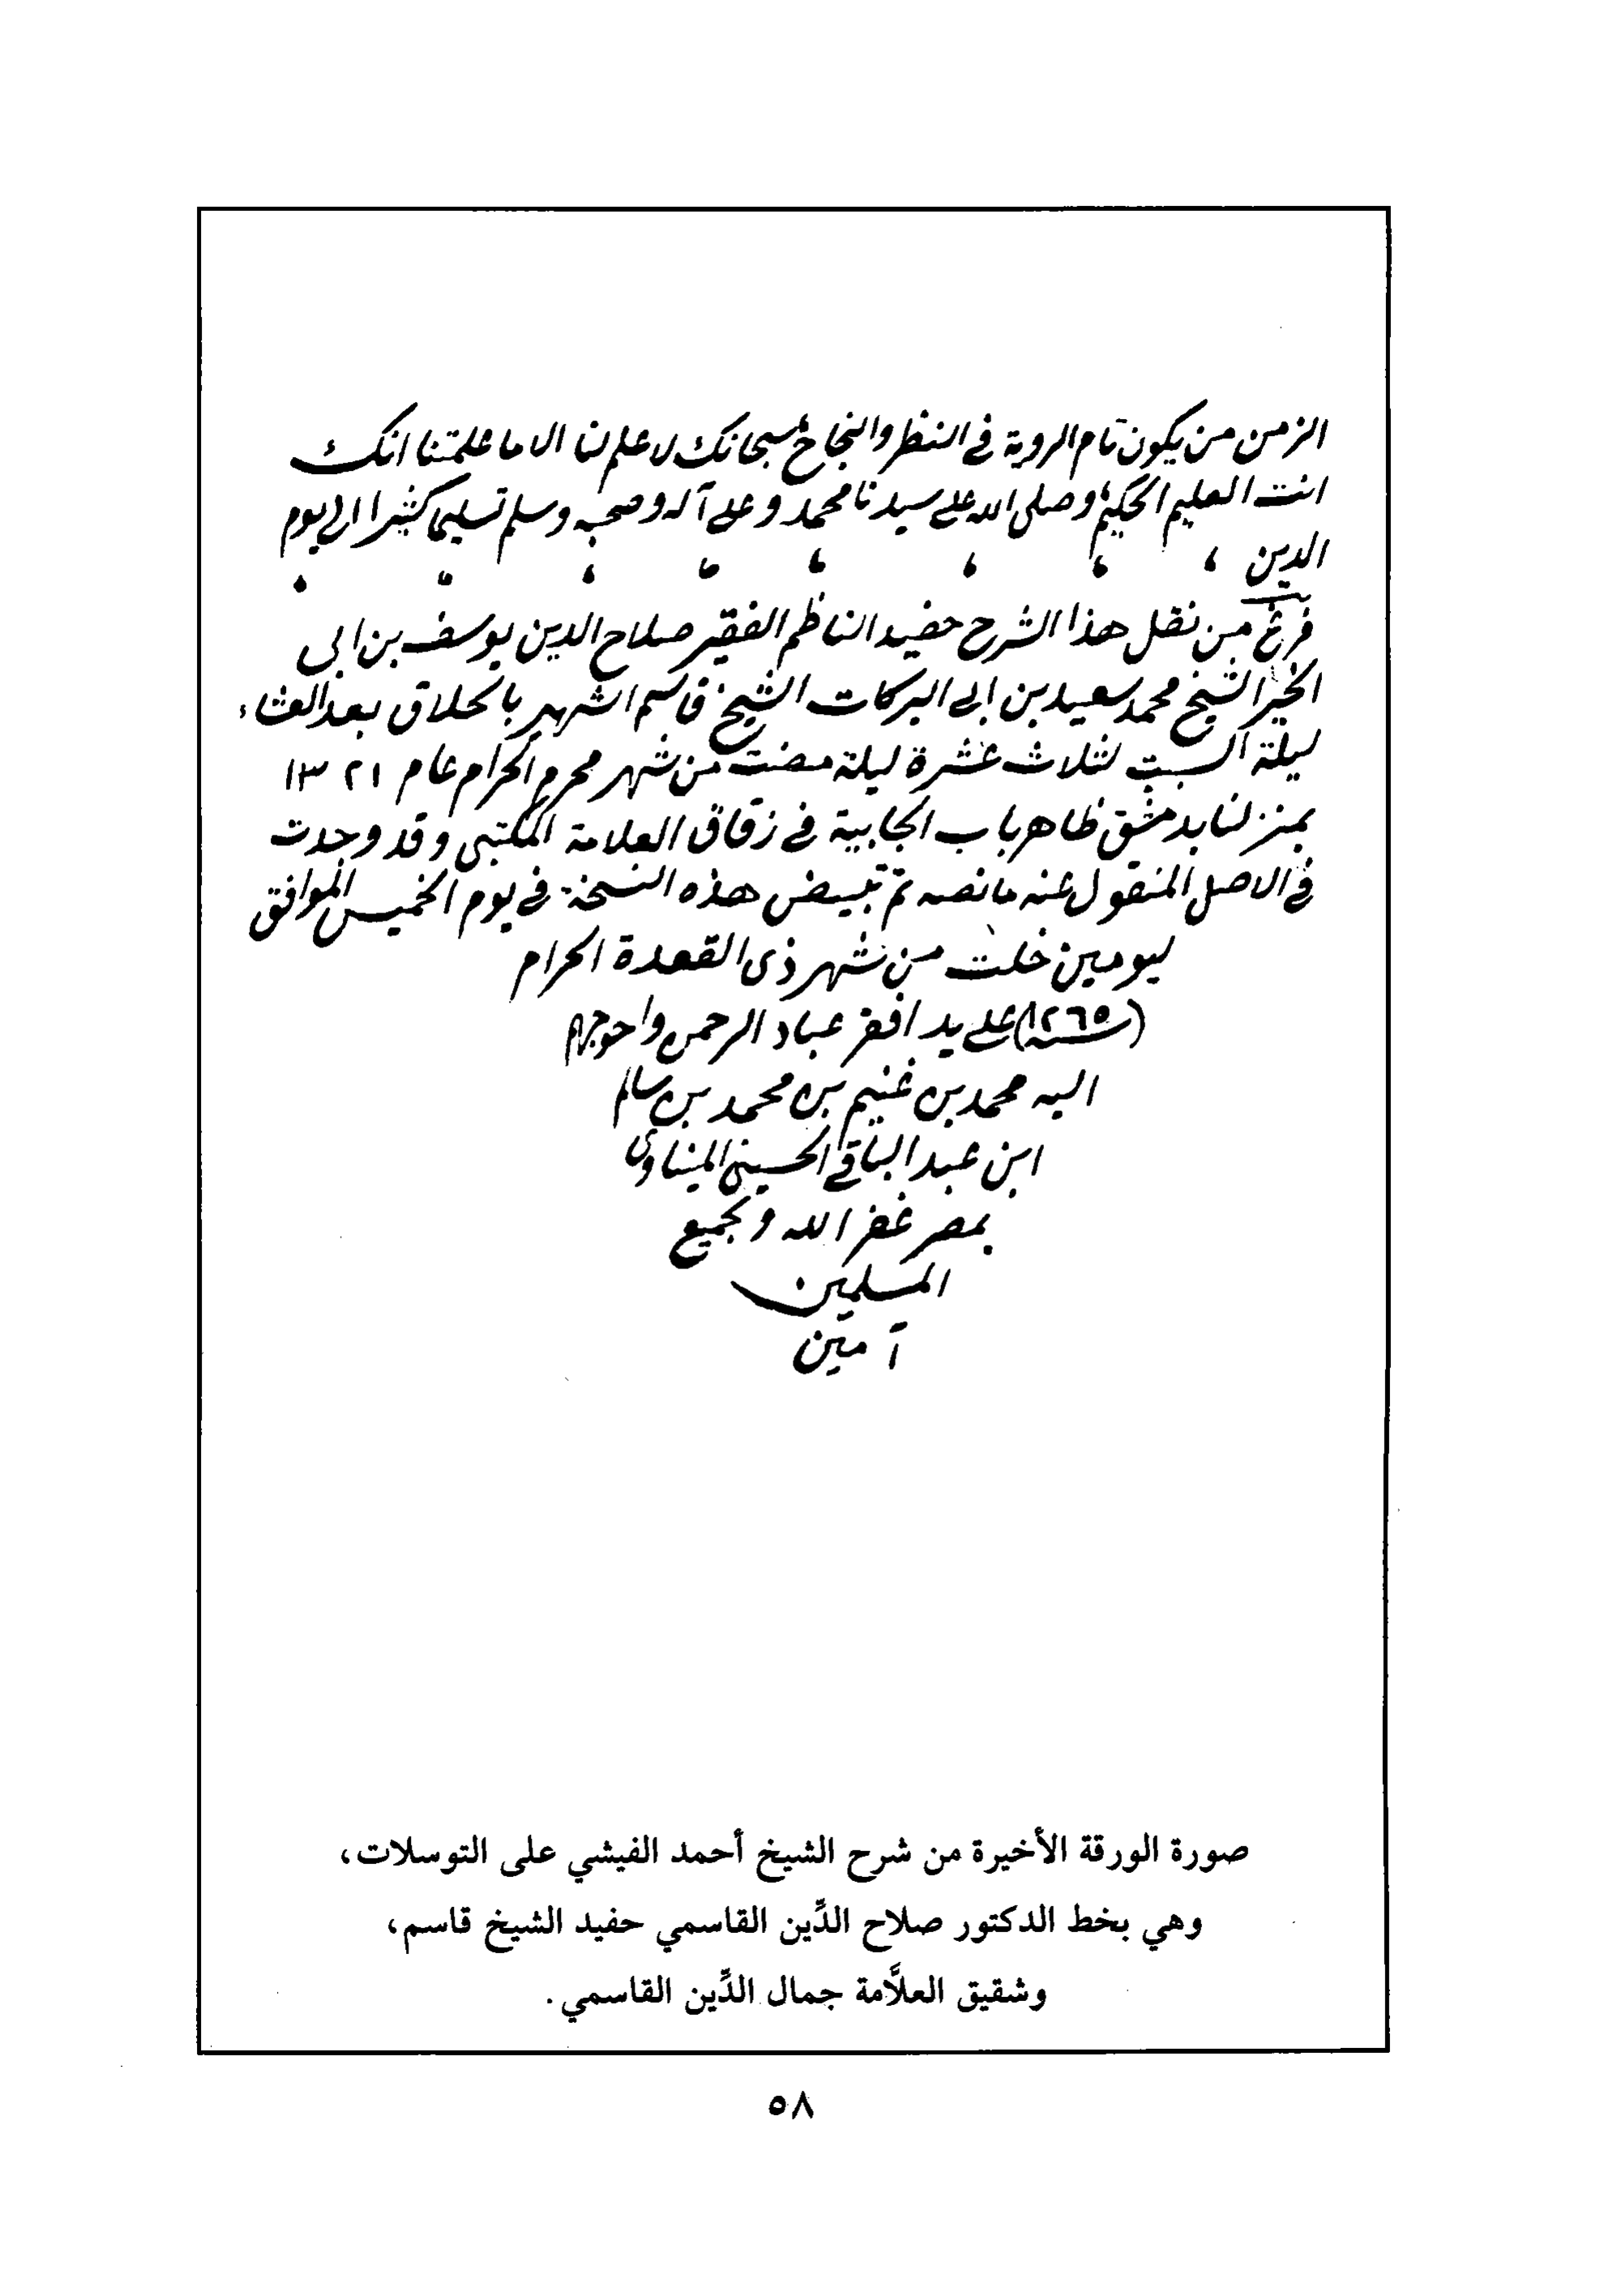 الزمن من يكون تام الروية في النظر والنجاح سبحانك لا علم لنا الا ما علمتنا انك
انت العليم الحكيم وصلى الله على سيدنا محمد وعلى آله وصحبه وسلم تسليما كثيرا الى يوم
الدين
فرغ من نقل هذا الشرح حفيد الناظم الفقير صلاح الدين يوسف بن ابى
الخير الشيخ محمد سعيد بن ابى البركات الشيخ قاسم الشهير بالحلاق بعد العشاء
ليلة السبت لثلاث عشرة ليلة مضت من شهر محرم الحرام عام ١٣٢١
بمنزلنا بدمشق ظاهر باب الجابية في زقاق العلامة المكتبى وقد وجدت
في الاصل المنقول عنه ما نصه تم تبييض هذه النسخة في يوم الخميس الموافق
ليومين خلت من شهر ذى القعدة الحرام
(سنة ١٢٦٥) على يد افقر عباد الرحمن واحوجهم
اليه محمد بن غنيم بن محمد بن سالم
ابن عبد الباقى الحسينى المناوى
بمصر غفر الله و لجميع
المسلمين
آمين
صورة الورقة الأخيرة من شرح الشيخ أحمد الفيشي على التوسلات،
وهي بخط الدكتور صلاح الدِّين القاسمي حفيد الشيخ قاسم،
وشقيق العلاَّمة جمال الدِّين القاسمي.
٥٨